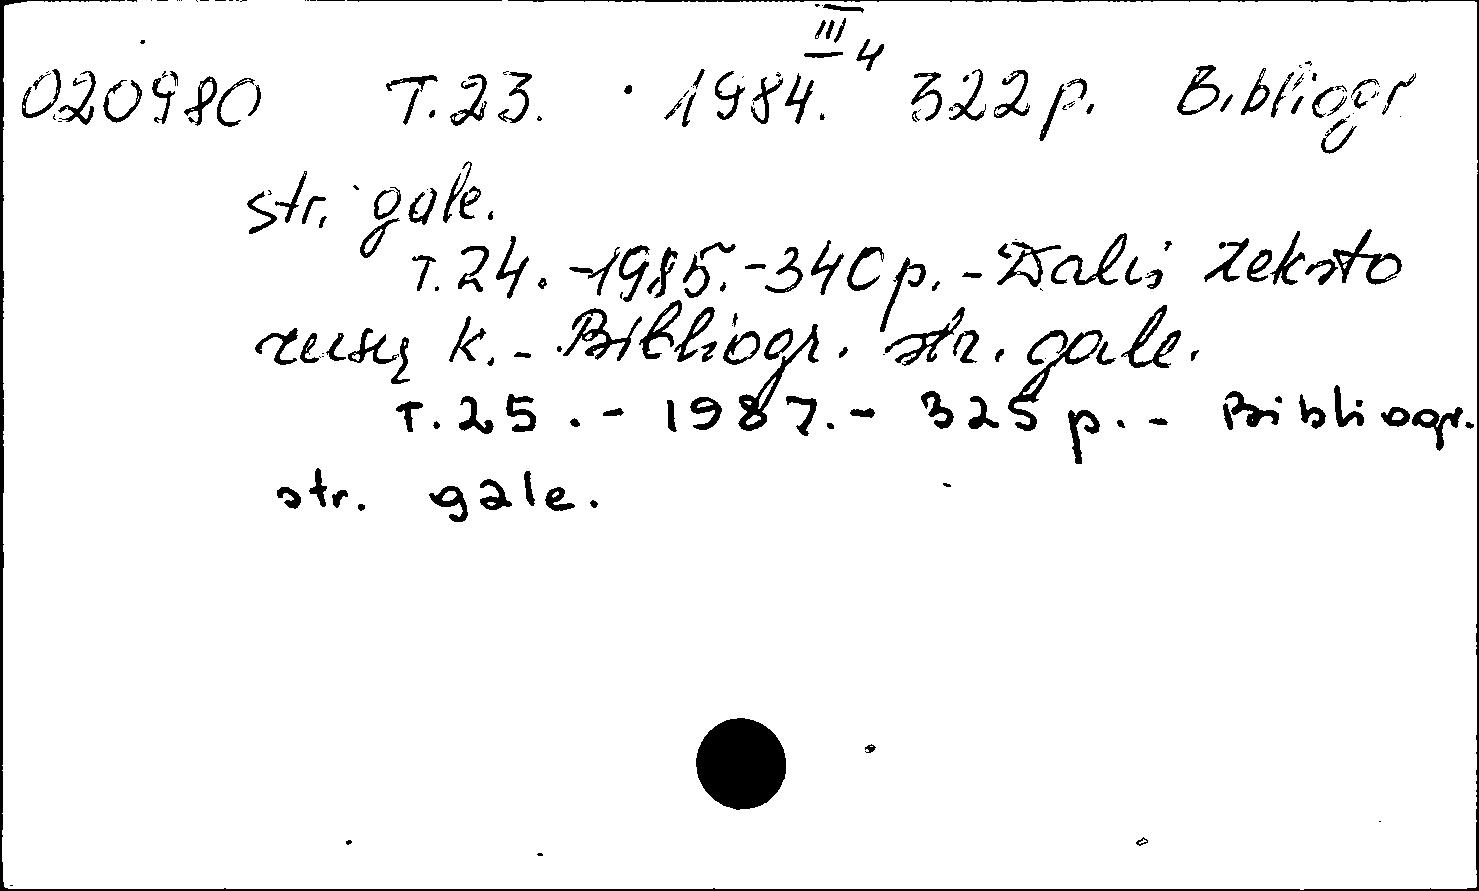 III 4
020980 T.23. 1984. 322 p. Bibliogr
str. gale.
T.24. -1985. -340 p. - Dalis teksto
rusų k. - Bibliogr. str. gale.
T.25. - 1987. - 325 p. - Bibliogr.
str. gale.